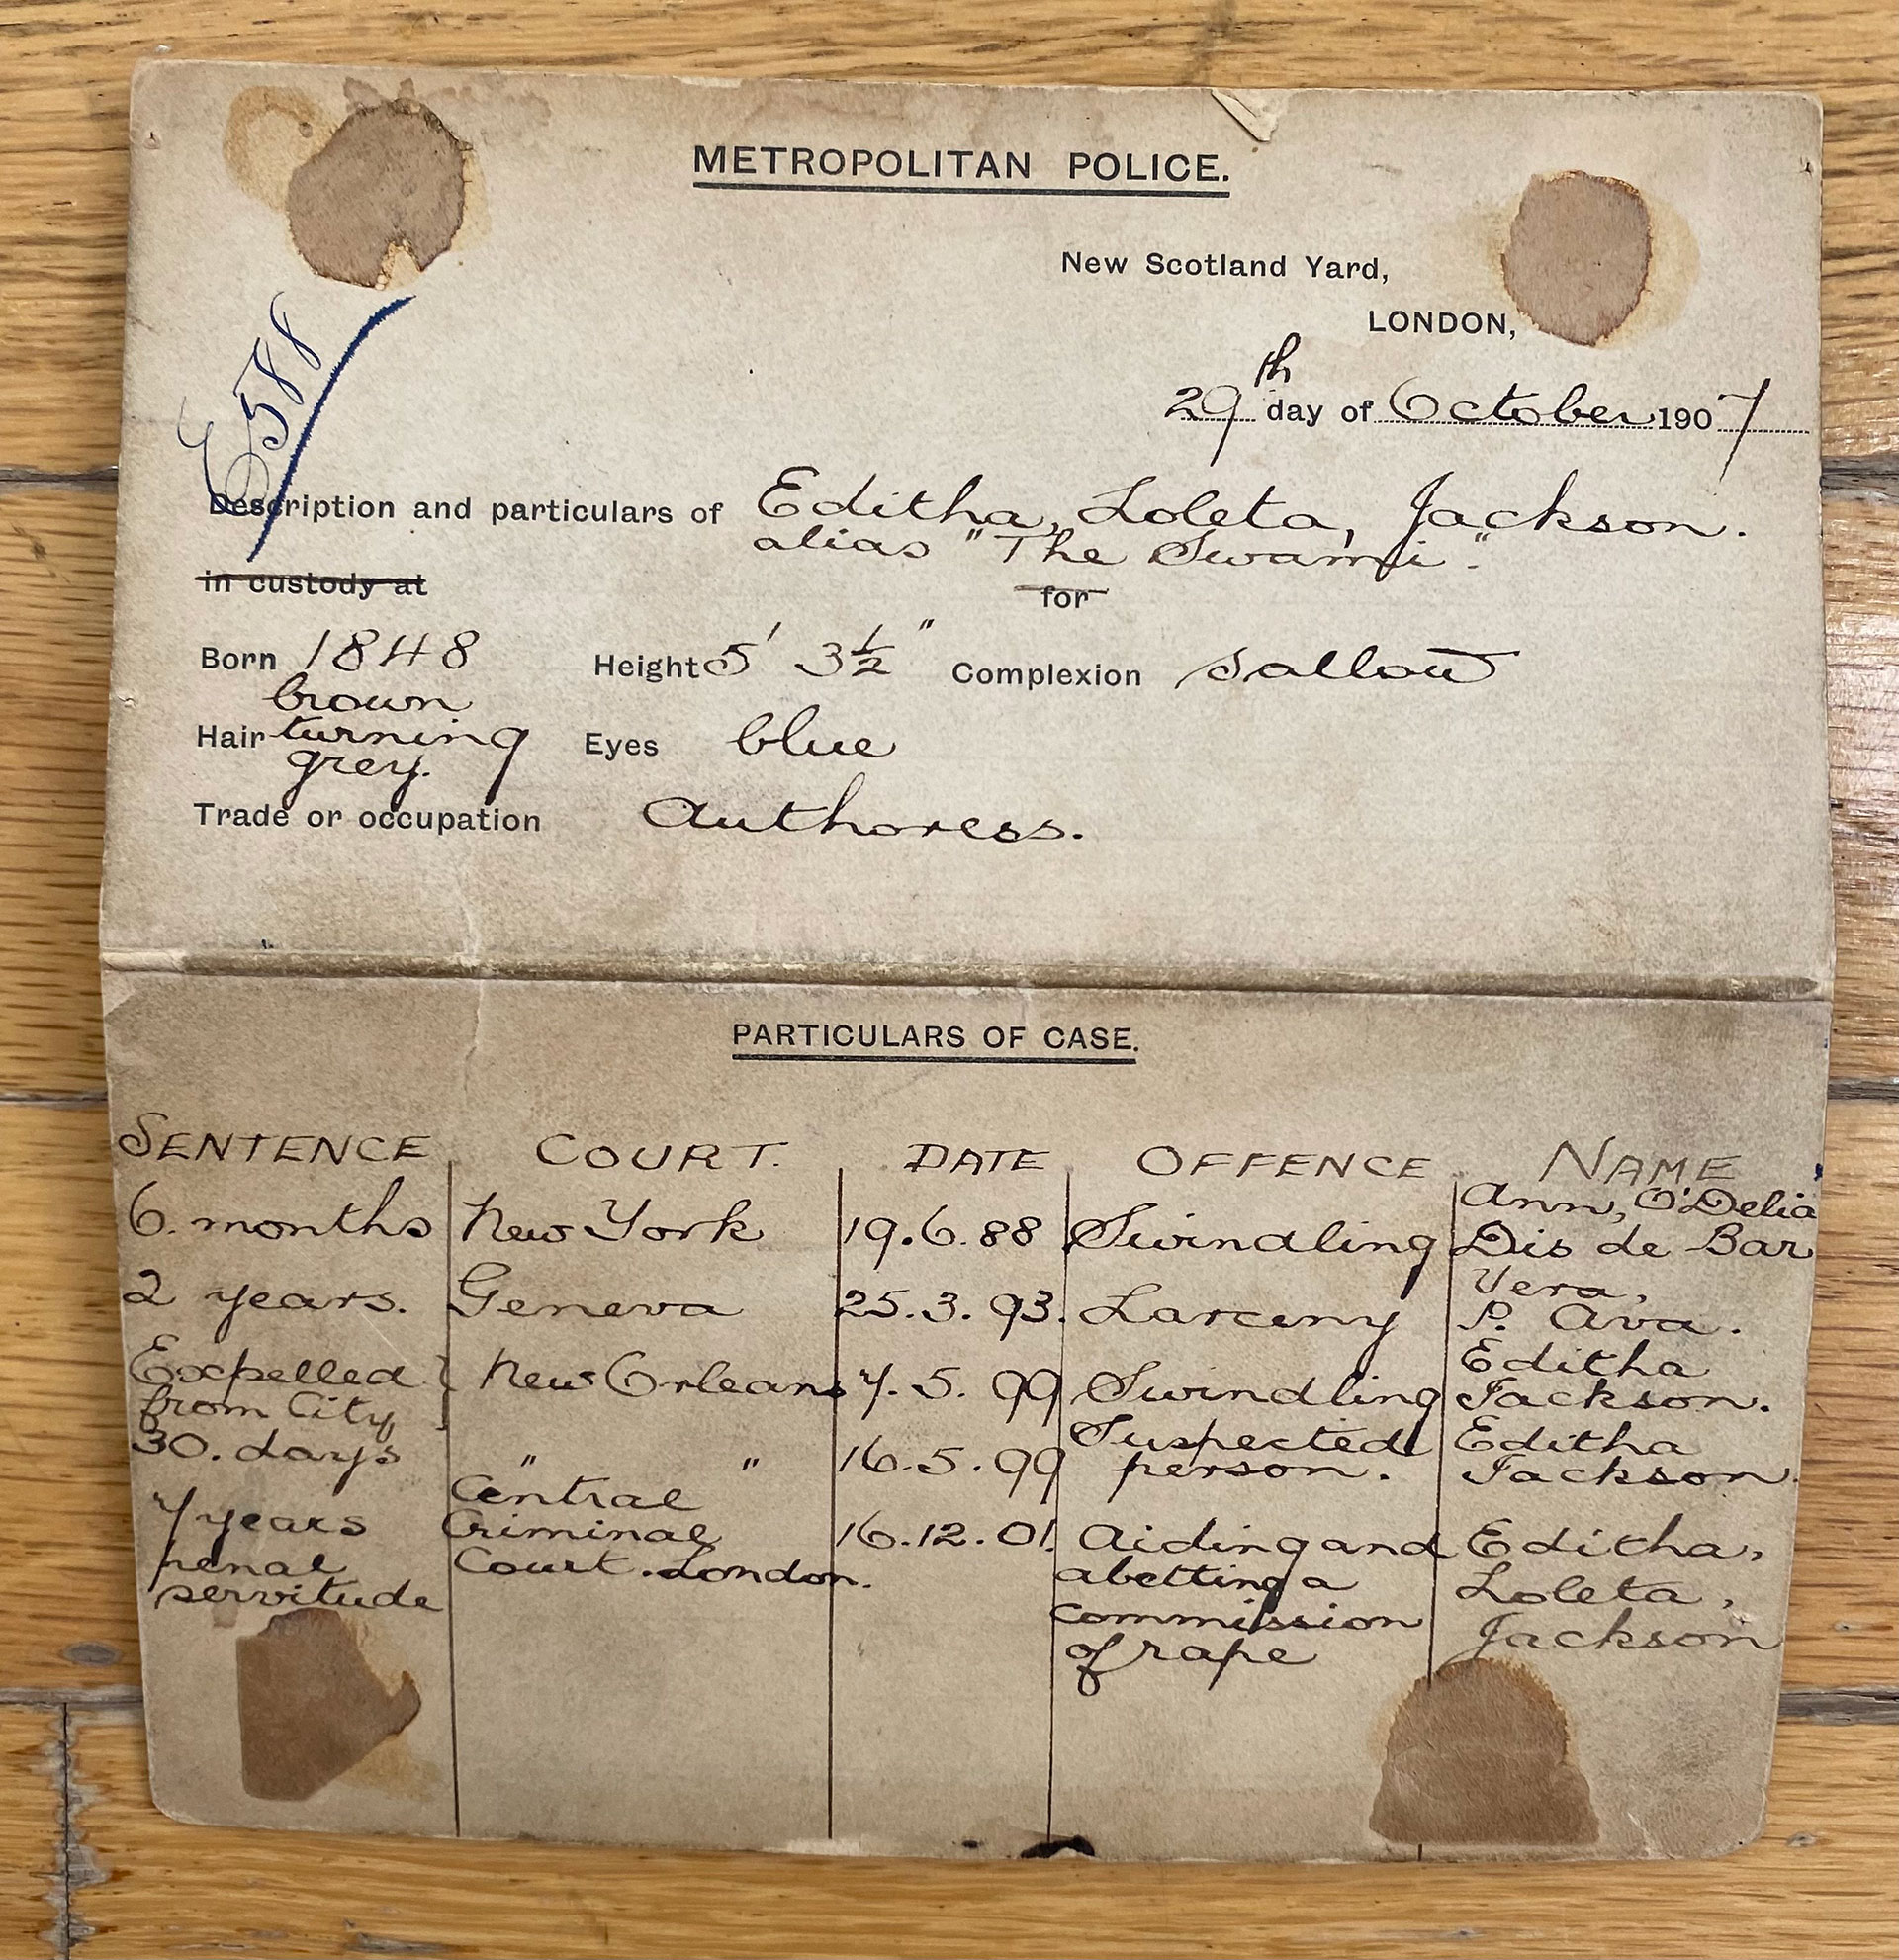 METROPOLITAN POLICE.
New Scotland Yard,
LONDON,
29th day of October 1907
E588
Description and particulars of Editha, Loleta, Jackson.
alias "The Swami".
in custody at for
Born 1848 Height 5' 3½" Complexion sallow
Hair brown turning grey. Eyes blue
Trade or occupation Authoress.
PARTICULARS OF CASE.
SENTENCE COURT. DATE OFFENCE NAME
6. months New York 19.6.88 Swindling Ann, O'Delia
Dis de Bar
2 years. Geneva 25.3.93. Larceny Vera,
P. Ava.
Expelled New Orleans 7.5.99 Swindling Editha
from City Jackson.
30. days " " 16.5.99 Suspected Editha
person. Jackson.
7 years Central 16.12.01. Aiding and Editha,
penal Criminal abetting a Loleta,
servitude Court. London. commission Jackson
of rape